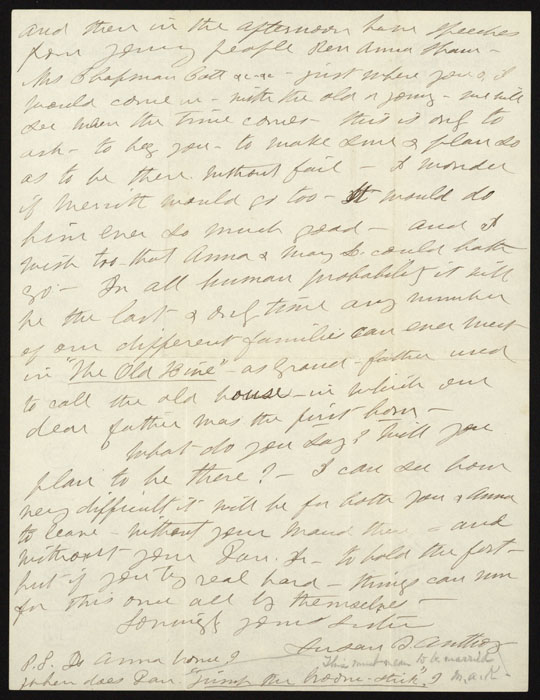 and then in the afternoon have speeches
from young people Rev Anna Shaw -
Mrs Chapman Catt &c - &c - just where you & I
would come in - with the old or young - we will
see when the time comes - this is only to
ask - to beg you - to make sure & plan so
as to be there without fail - I wonder
if Merritt would go too - It would do
him ever so much good - and I
wish too - that Anna & Mary L. could both
go - In all human probability it will
be the last & only time any number
of our different families can ever meet
in "The Old Hive" - as Grand-father used
to call the old house - in which our
dear father was the first born -
What do you say? Will you
plan to be there? - I can see how
very difficult it will be for both you & Anna
to leave - without your Maud there - and
without your Dan. Jr - to hold the fort -
but if you try real hard - things can run
for this once all by themselves -
Lovingly yours Sister
Susan B. Anthony
P.S. Is Anna home?
This must mean to be married
when does Dan "jump the broom-stick"?